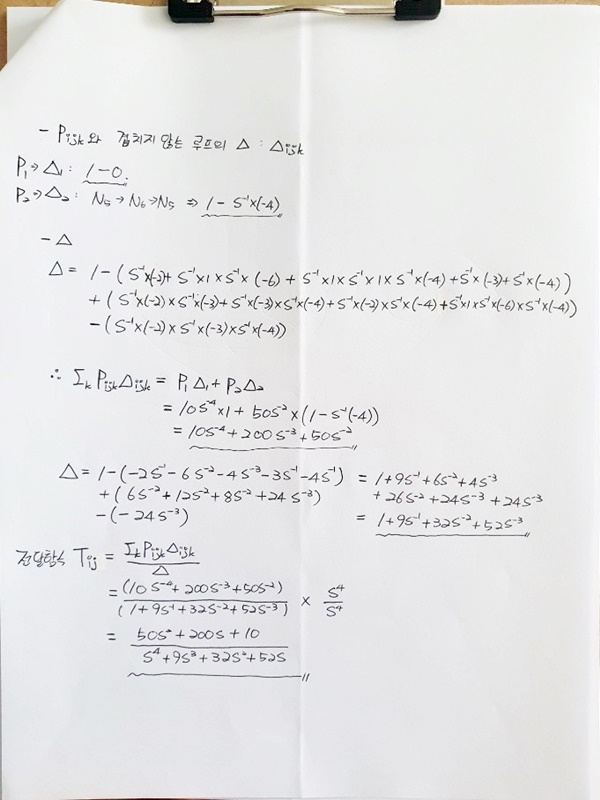 - Pijk와 겹치지 않는 루프의 Δ : Δijk
P₁ → Δ₁ : 1-0.
P₂ → Δ₂ : N₅ → N₆ → N₅ ⇒ 1 - S⁻¹×(-4)
- Δ
Δ = 1 - (S⁻¹×(-2) + S⁻¹×1×S⁻¹×(-6) + S⁻¹×1×S⁻¹×1×S⁻¹×(-4) + S⁻¹×(-3) + S⁻¹×(-4))
+ (S⁻¹×(-2)×S⁻¹×(-3) + S⁻¹×(-3)×S⁻¹×(-4) + S⁻¹×(-2)×S⁻¹×(-4) + S⁻¹×1×S⁻¹×(-6)×S⁻¹×(-4))
- (S⁻¹×(-2)×S⁻¹×(-3)×S⁻¹×(-4))
∴ Σk Pijk Δijk = P₁Δ₁ + P₂Δ₂
= 10S⁻⁴×1 + 50S⁻²×(1-S⁻¹(-4))
= 10S⁻⁴ + 200S⁻³ + 50S⁻²
Δ = 1 - (-2S⁻¹ - 6S⁻² - 4S⁻³ - 3S⁻¹ - 4S⁻¹) = 1 + 9S⁻¹ + 6S⁻² + 4S⁻³
+ (6S⁻² + 12S⁻² + 8S⁻² + 24S⁻³) + 26S⁻² + 24S⁻³ + 24S⁻³
- (-24S⁻³) = 1 + 9S⁻¹ + 32S⁻² + 52S⁻³
전달함수 Tij = Σk Pijk Δijk / Δ
= (10S⁻⁴ + 200S⁻³ + 50S⁻²) / (1 + 9S⁻¹ + 32S⁻² + 52S⁻³) × S⁴/S⁴
= 50S² + 200S + 10 / S⁴ + 9S³ + 32S² + 52S